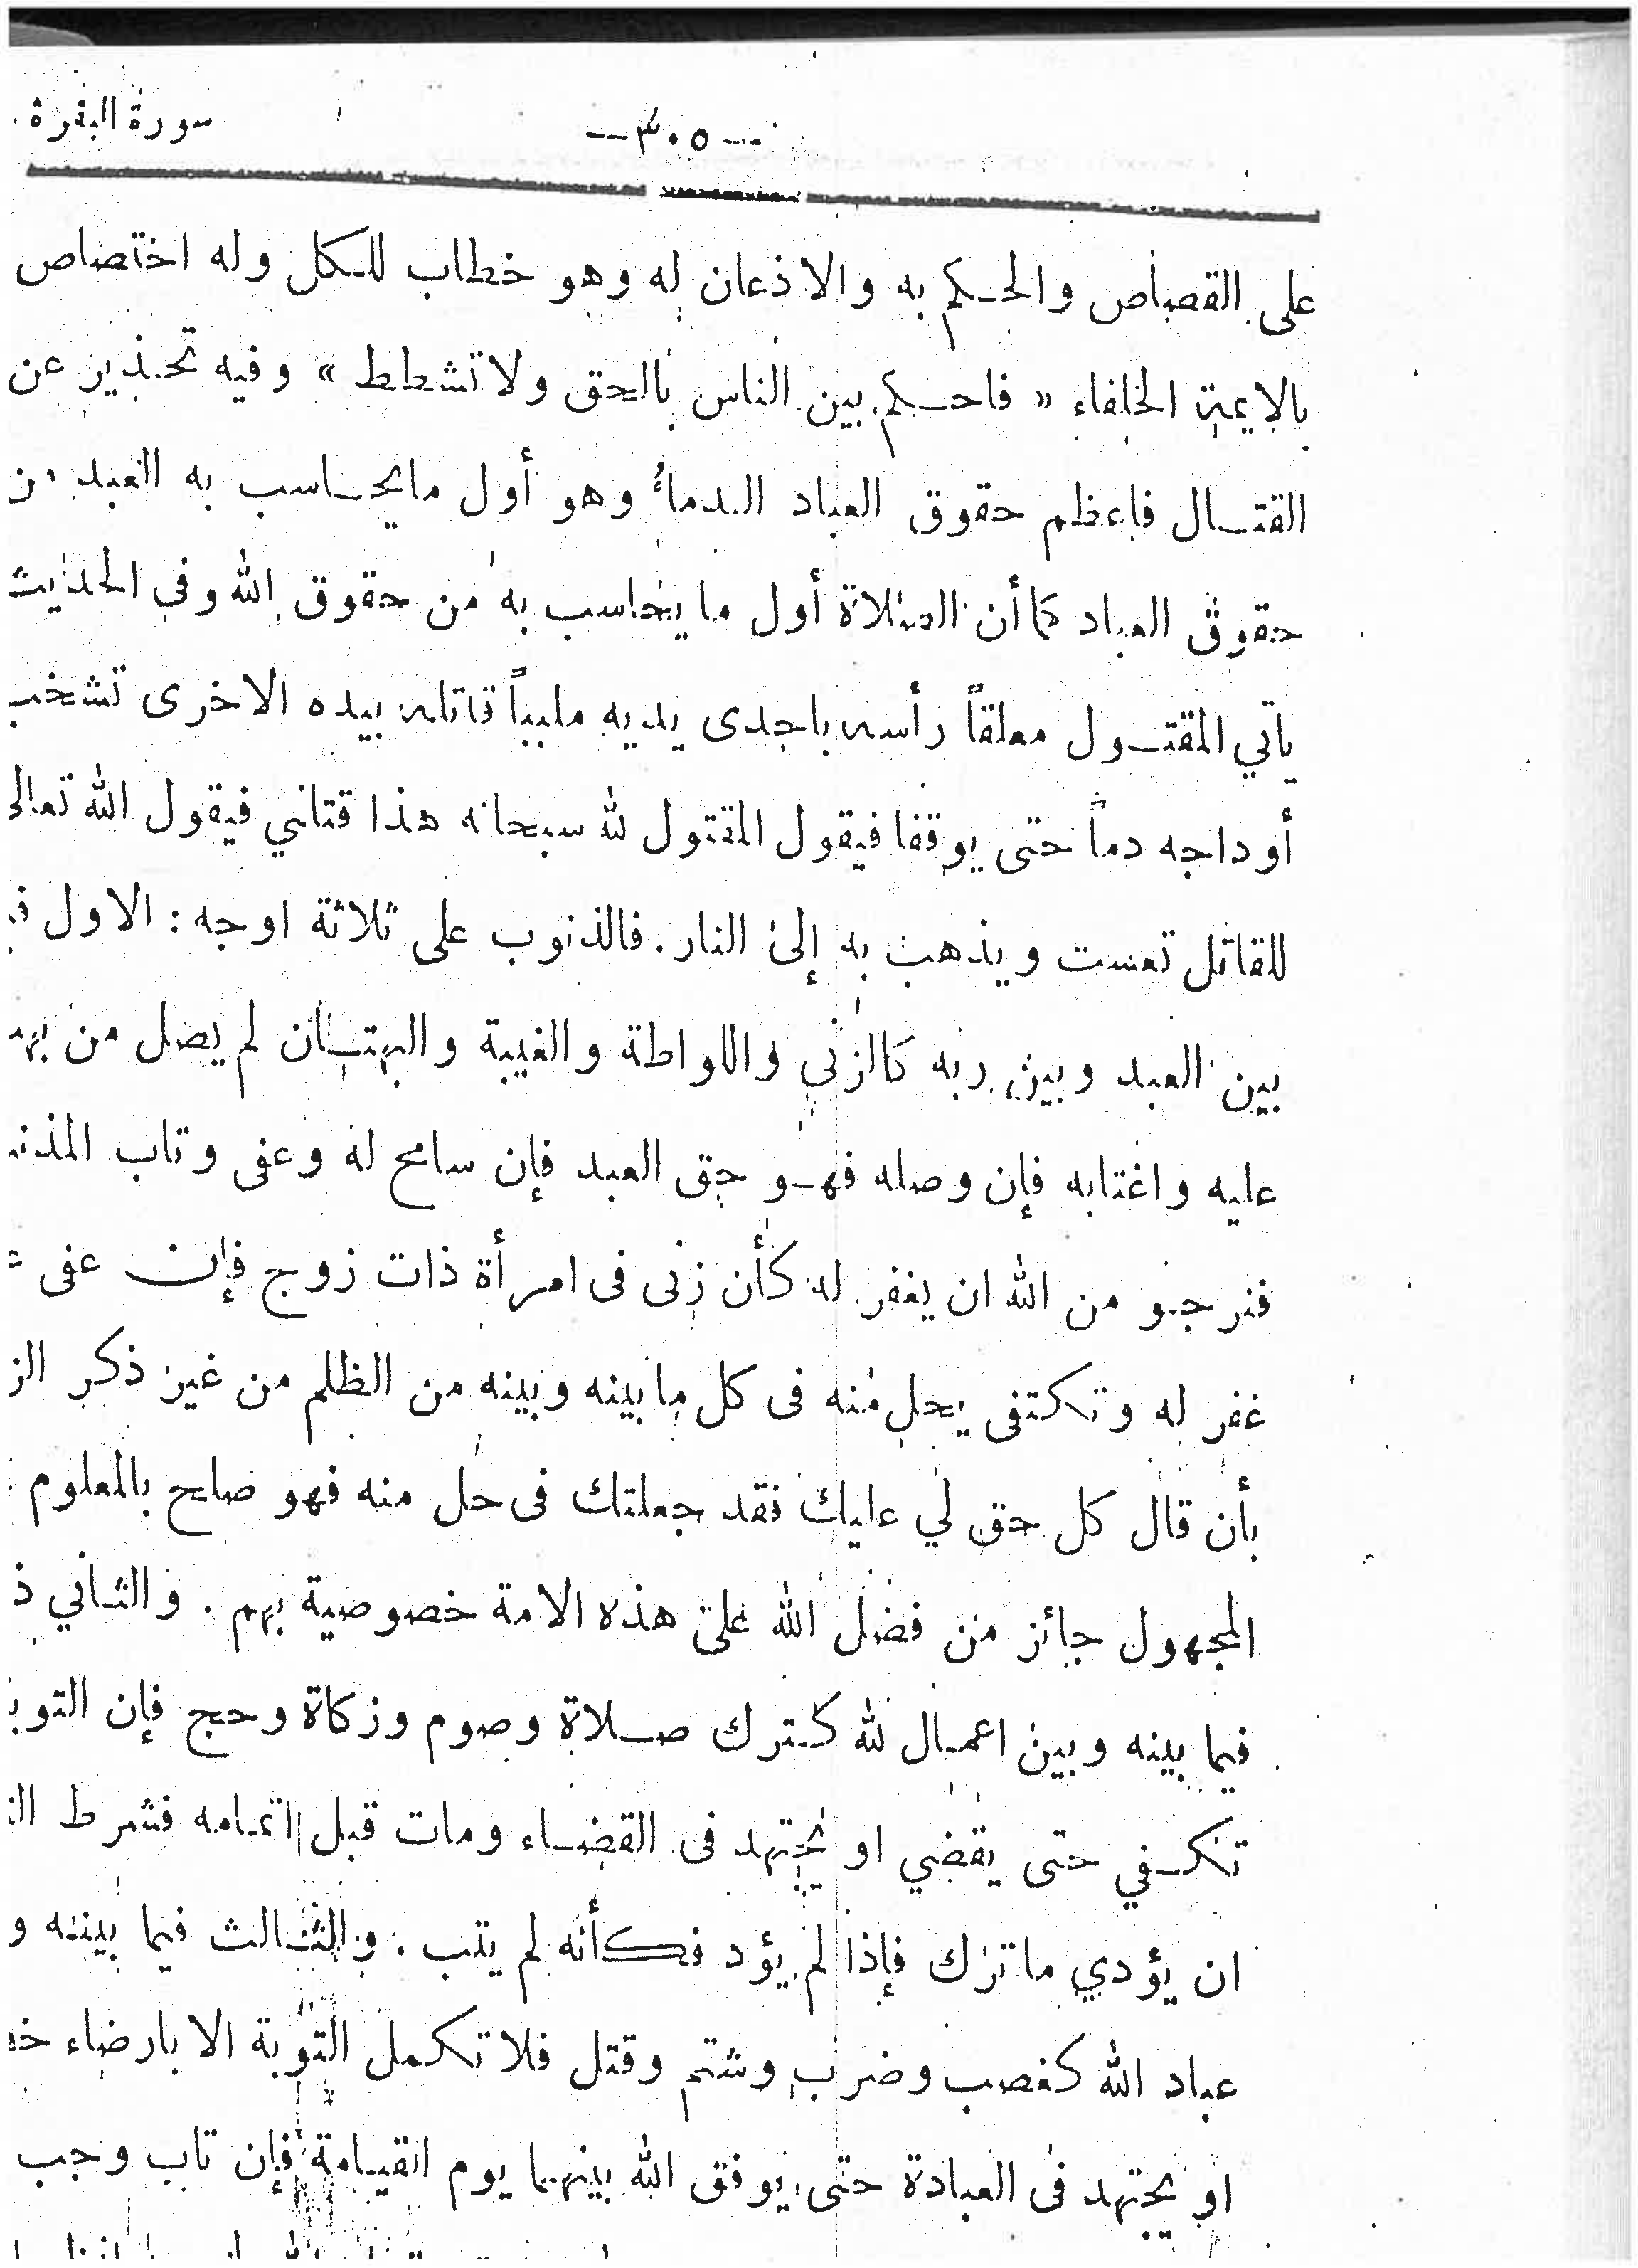 سورة البقرة
--٣٠٥--
على القصاص والحكم به والاذعان له وهو خطاب للكل وله اختصاص
بالايمة الخلفاء « فاحكم بين الناس بالحق ولا تشطط » وفيه تحذير عن
القتال فاعظم حقوق العباد الدماء وهو أول ما يحاسب به العبد من
حقوق العباد كما أن الصلاة أول ما يحاسب به من حقوق الله وفى الحديث
يأتي المقتول معلقاً رأسه باحدى يديه ملبباً قاتله بيده الاخرى تشخب
أوداجه دماً حتى يوقفا فيقول المقتول لله سبحانه هذا قتلني فيقول الله تعالى
للقاتل تعست ويذهب به إلى النار . فالذنوب على ثلاثة اوجه : الاول
بين العبد وبين ربه كالزنى واللواطة والغيبة والبهتان لم يصل من
عليه واغتابه فإن وصله فهو حق العبد فإن سامح له وعفى وتاب
فنرجو من الله ان يغفر له كأن زنى فى امرأة ذات زوج فإن عفى
غفر له وتكتفى يحل منه فى كل ما بينه وبينه من الظلم من غير ذكر
بأن قال كل حق لي عليك فقد جعلتك فى حل منه فهو صلح بالمعلوم
المجهول جائز من فضل الله على هذه الامة خصوصية بهم . والثاني
فيما بينه وبين اعمال لله كترك صلاة وصوم وزكاة وحج فإن
تكفي حتى يقضي او يجتهد فى القضاء ومات قبل اتمامه فشرط
ان يؤدي ما ترك فإذا لم يؤد فكأنه لم يتب . والثالث فيما بينه و
عباد الله كغصب وضرب وشتم وقتل فلا تكمل التوبة الا بارضاء
او يجتهد فى العبادة حتى يوفق الله بينهما يوم القيامة فإن تاب وجب